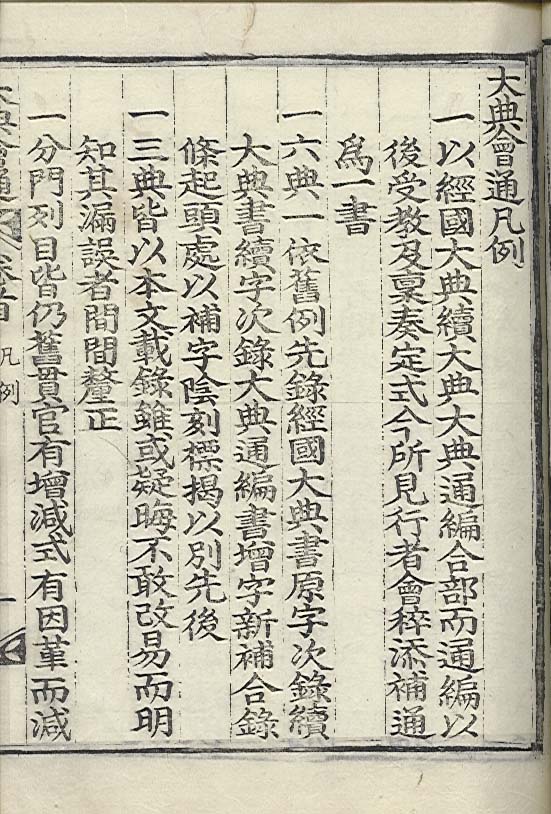 大典會通凡例
一以經國大典續大典大典通編合部而通編以
後受教及稟奏定式今所見行者會梓添補通
爲一書
一六典一依舊例先錄經國大典書原字次錄續
大典書續字次錄大典通編書增字新補合錄
條起頭處以補字陰刻標揭以別先後
一三典皆以本文載錄雖或疑晦不敢改易而明
知其漏誤者間間釐正
一分門列目皆仍舊貫官有增減式有因革而減
大典會通 卷首 凡例 一